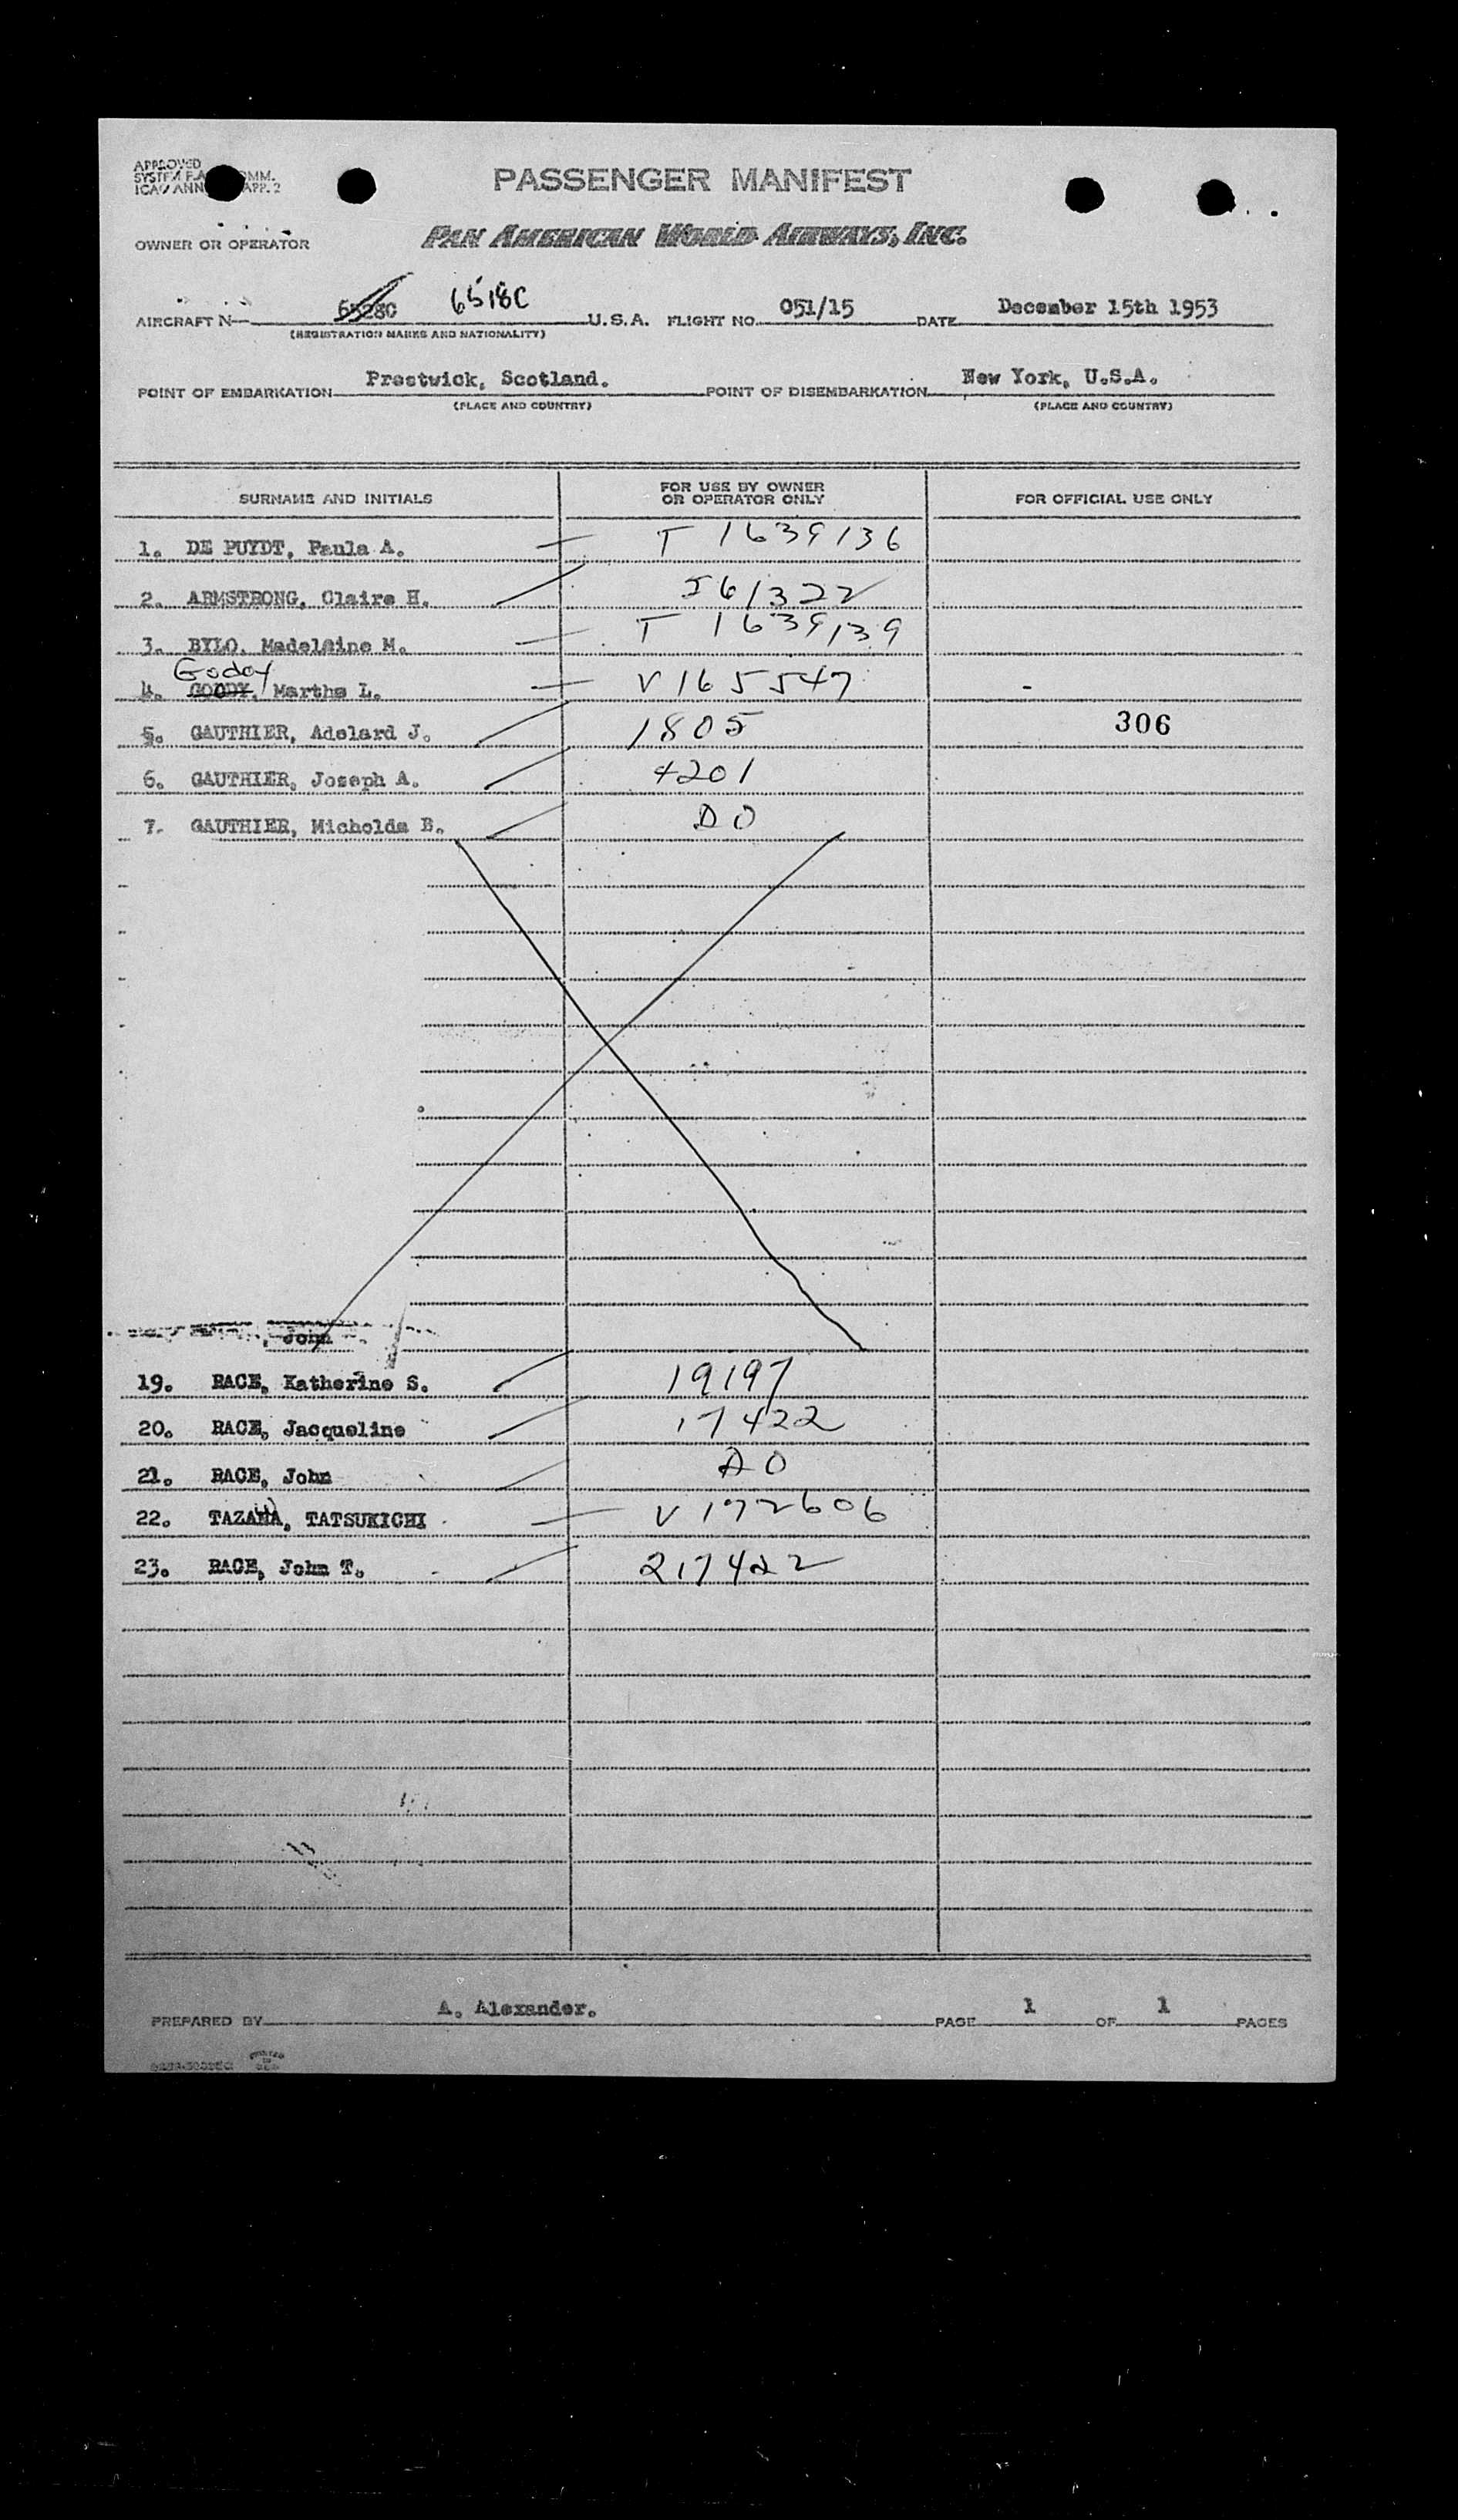 APPROVED
PASSENGER MANIFEST
ICAO ANN APP. 2
OWNER OR OPERATOR PAN AMERICAN WORLD AIRWAYS, INC.
AIRCRAFT N— 6528C 6518C U.S.A. FLIGHT NO. 051/15 DATE December 15th 1953
(REGISTRATION MARKS AND NATIONALITY)
POINT OF EMBARKATION Prestwick, Scotland. POINT OF DISEMBARKATION New York, U.S.A.
(PLACE AND COUNTRY) (PLACE AND COUNTRY)
SURNAME AND INITIALS FOR USE BY OWNER OR OPERATOR ONLY FOR OFFICIAL USE ONLY
1. DE PUYDT, Paula A. T 1639136
2. ARMSTRONG, Claire H. 561322
3. BYLO, Madeleine M. T 1639139
Godoy
4. GOODY, Martha L. V165547
5. GAUTHIER, Adelard J. 1805 306
6. GAUTHIER, Joseph A. 4201
7. GAUTHIER, Micholda B. DO
, John
19. RACE, Katherine S. 19197
20. RACE, Jacqueline 17422
21. RACE, John DO
22. TAZAWA, TATSUKICHI V192606
23. RACE, John T. 217422
PREPARED BY A. Alexander. PAGE 1 OF 1 PAGES